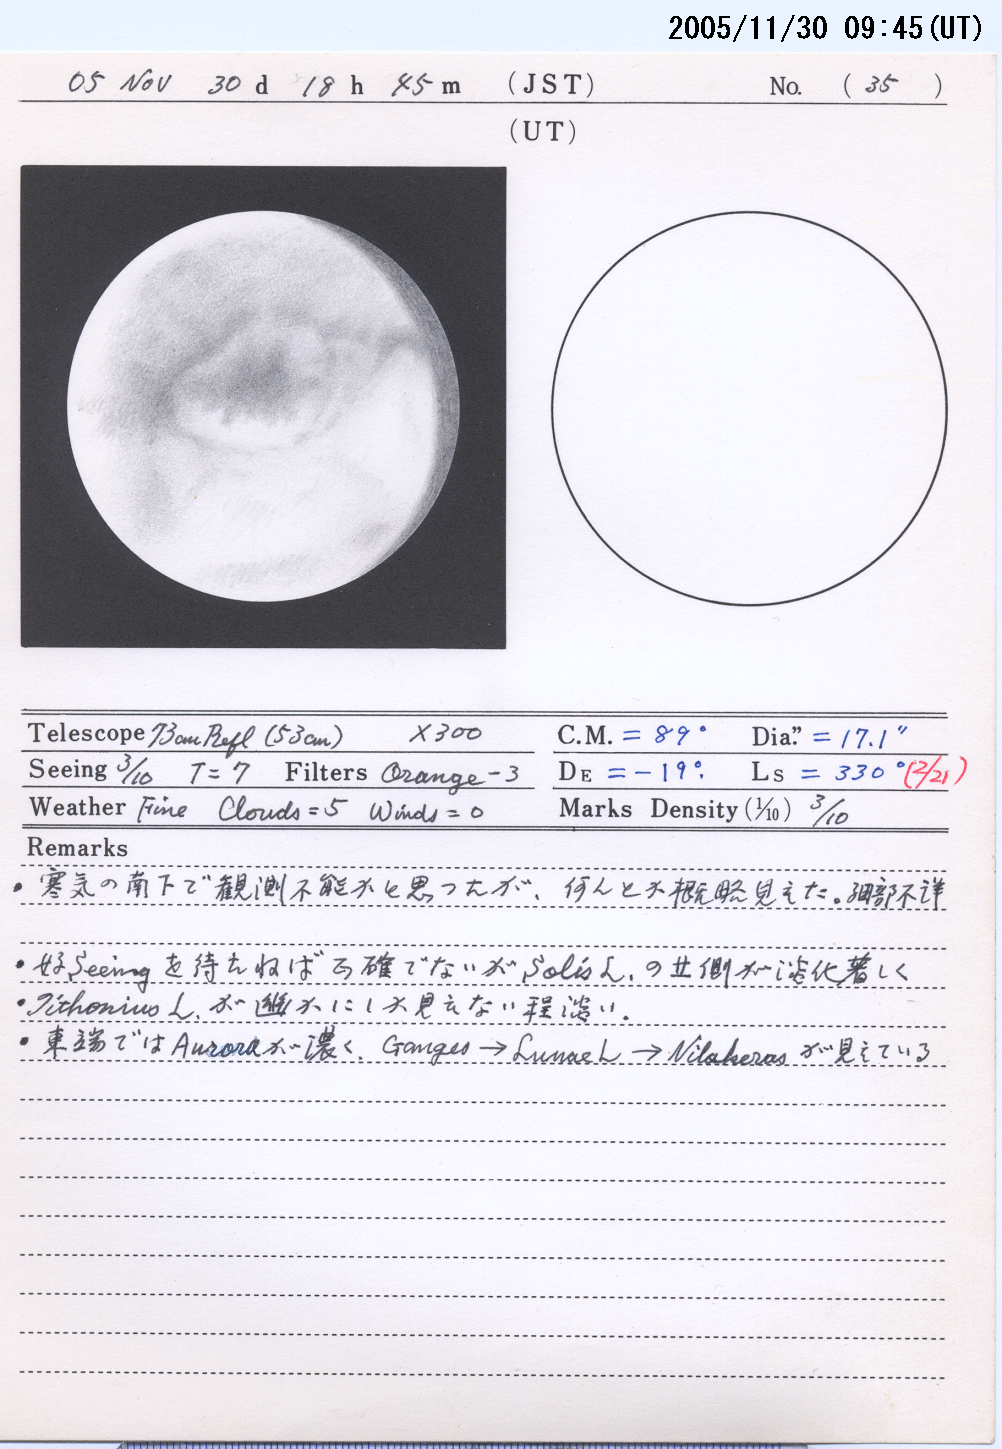 2005/11/30 09:45(UT)
05 Nov 30 d 18 h 45 m (JST) No. (35)
(UT)
Telescope 73cm Refl (53cm) ×300 C.M. = 89° Dia." = 17.1"
Seeing 3/10 T=7 Filters Orange-3 DE = -19°. Ls = 330° (2/21)
Weather Fine Clouds=5 Winds=0 Marks Density (1/10) 3/10
Remarks
・寒気の南下で観測不能かと思ったが、何んとか概略見えた。細部不詳
・好Seeingを待たねば 確でないが Solis L. の 側が淡化著しく
・Tithonius L. が かにしか見えない程淡い.
・東端ではAuroraが濃く、Ganges→Lunae L→Nilokerasが見えている